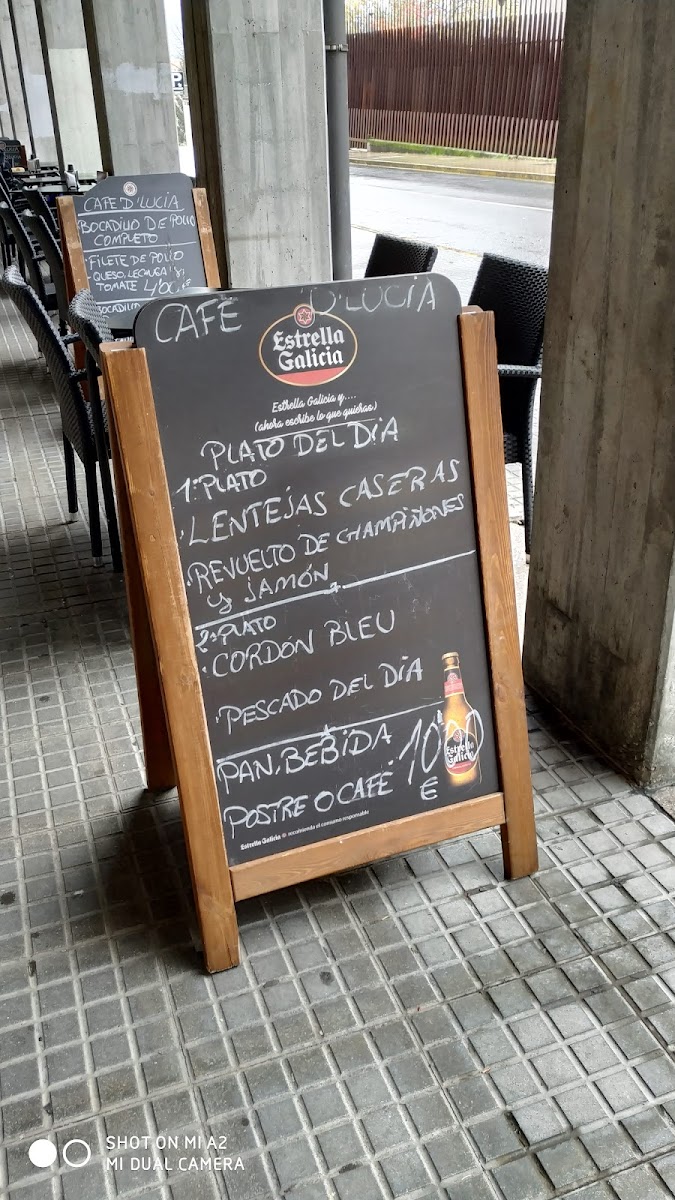 CAFE D'LUCIA
BOCADILLO DE POLLO
COMPLETO
FILETE DE POLLO
QUESO, LECHUGA Y
TOMATE 4'00€
BOCADILLO
CAFE D'LUCIA
Estrella
Galicia
Estrella Galicia y....
(ahora escribe lo que quieras)
PLATO DEL DIA
1º PLATO
LENTEJAS CASERAS
REVUELTO DE CHAMPIÑONES
y JAMÓN
2º PLATO
CORDÓN BLEU
PESCADO DEL DIA
PAN, BEBIDA
POSTRE O CAFÉ
10'00
€
Estrella
Galicia
Estrella Galicia recomienda el consumo responsable
SHOT ON MI A2
MI DUAL CAMERA